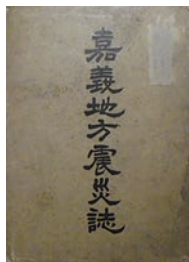 嘉義地方震災誌